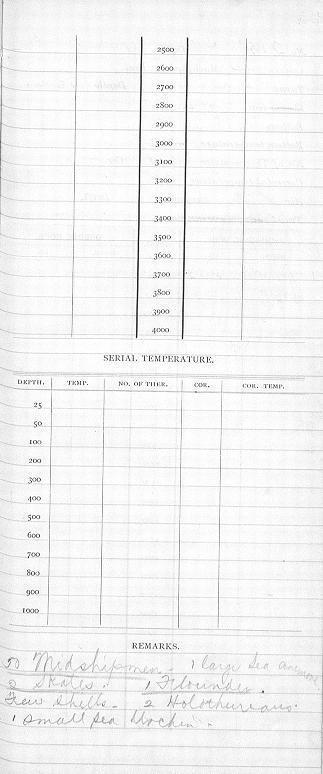 2500
2600
2700
2800
2900
3000
3100
3200
3300
3400
3500
3600
3700
3800
3900
4000
SERIAL TEMPERATURE.
DEPTH. TEMP. NO. OF THER. COR. COR. TEMP.
25
50
100
200
300
400
500
600
700
800
900
1000
REMARKS.
50 Midshipmen - 1 large Sea anemone
2 Skates. 1 Flounder.
Few shells - 2 Holothurians.
1 small Sea Urchin.